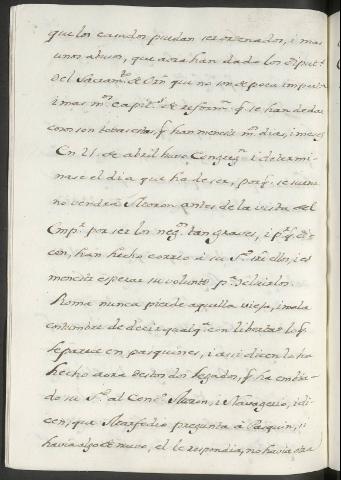 que los casados puedan ser ordenados, i mas
unos abusos, que aora han dado los Diput.s
del Sacram.to de Orn que no son de poca import.a
i mas m.s capit.s de reform.n q. se han de dar
como son todas estas, q. han menester m.s dias, i meses
En 21. de abril huvo Congreg.n i determi-
nase el dia que ha de ser, porq. se suena
no vendrá Moron antes de la vista del
Emp.r por ser los neg.os tan graves, i p.r q. di-
cen, han hecho correo à su S.d sre ellos, i es
menester esperar su volunt.d p.a decluirlos.
Roma nunca pierde aquella vieja, i mala
costumbre de decir qualq.a con libertad lo q.
le parece en pasquines, i assi dicen lo ha
hecho aora destos dos Legados, q. ha embia-
do su S.d al Conc.o Moron, i Navagerio, i di-
cen, que Marfodio pregunta à Pasquin, si
havia algo de nuevo, el le respondia, no havia otra